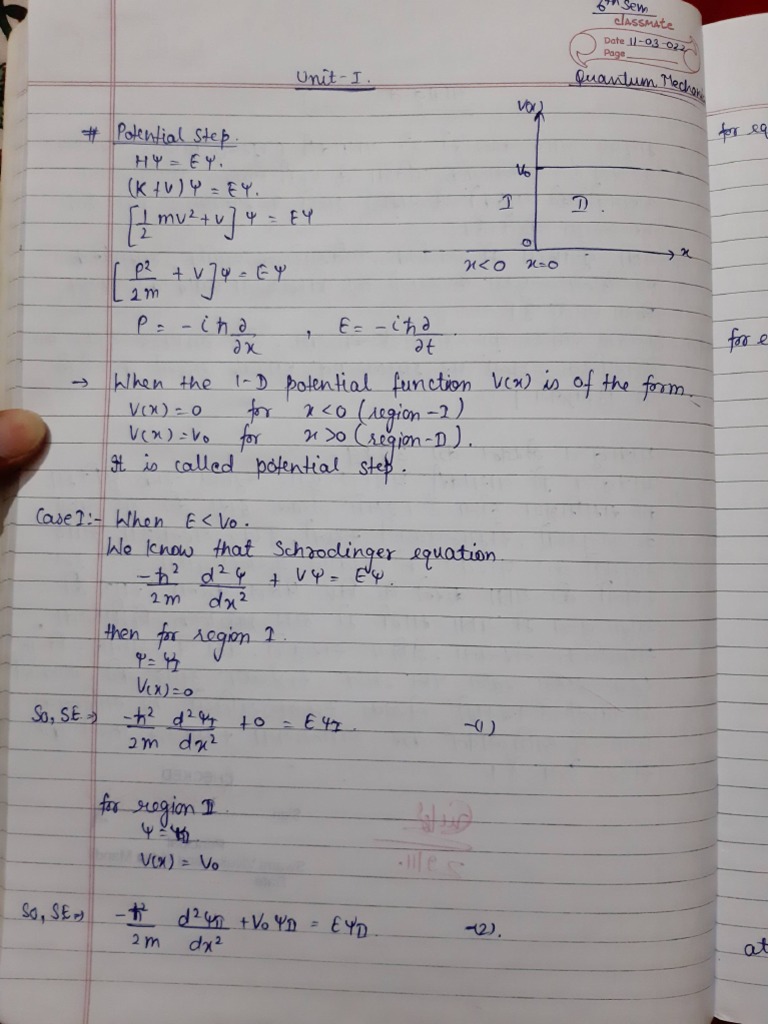 6th Sem
classmate
Date 11-03-022
Page
Unit-I.
Quantum Mechan
# Potential Step.
Hψ = Eψ.
(K+V)ψ = Eψ.
[1/2 mv² + V] ψ = Eψ
[P²/2m + V] ψ = Eψ
P = -iħ ∂/∂x , E = -iħ ∂/∂t
V(x)
V₀
I II.
0
x
x<0 x=0
→ When the 1-D potential function V(x) is of the form.
V(x) = 0 for x<0 (region-I)
V(x) = V₀ for x>0 (region-II).
It is called potential step.
Case I:- When E<V₀.
We know that Schrodinger equation
-ħ²/2m d²ψ/dx² + Vψ = Eψ.
then for region I.
ψ = ψI
V(x)=0
So, SE ⇒ -ħ²/2m d²ψI/dx² + 0 = EψI. -(1)
for region II
ψ = ψII.
V(x) = V₀
So, SE ⇒ -ħ²/2m d²ψII/dx² + V₀ψII = EψII. -(2).
for eq
for e
at